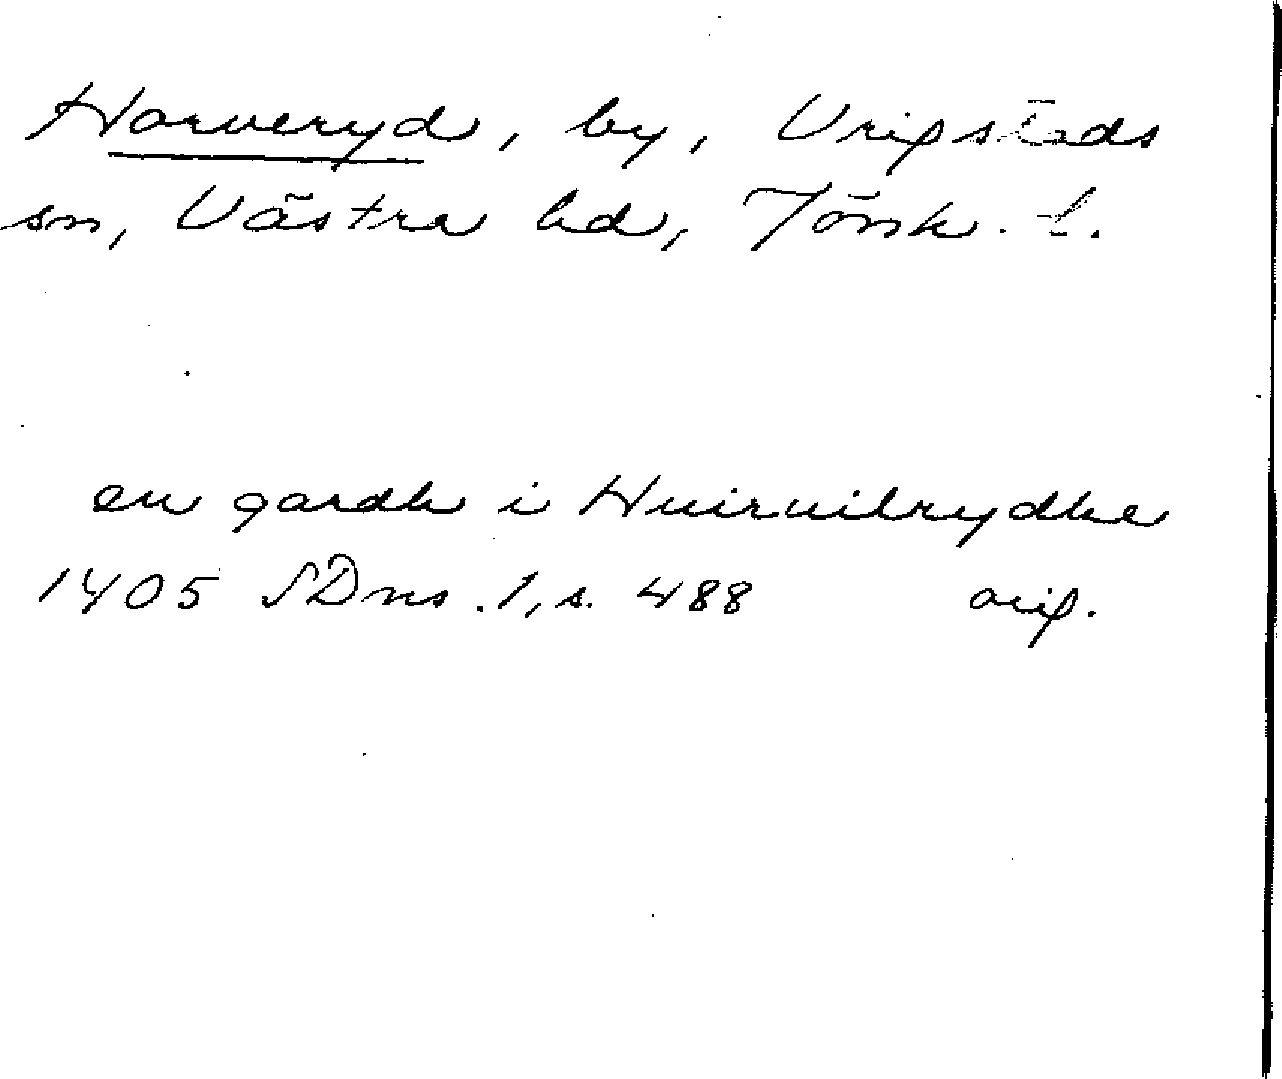 Horveryd, by, Vrigstads
sn, Västra hd, Jönk. l.
en gardh i Huiruilrydhe
1405 SDns. 1, s. 488 orig.